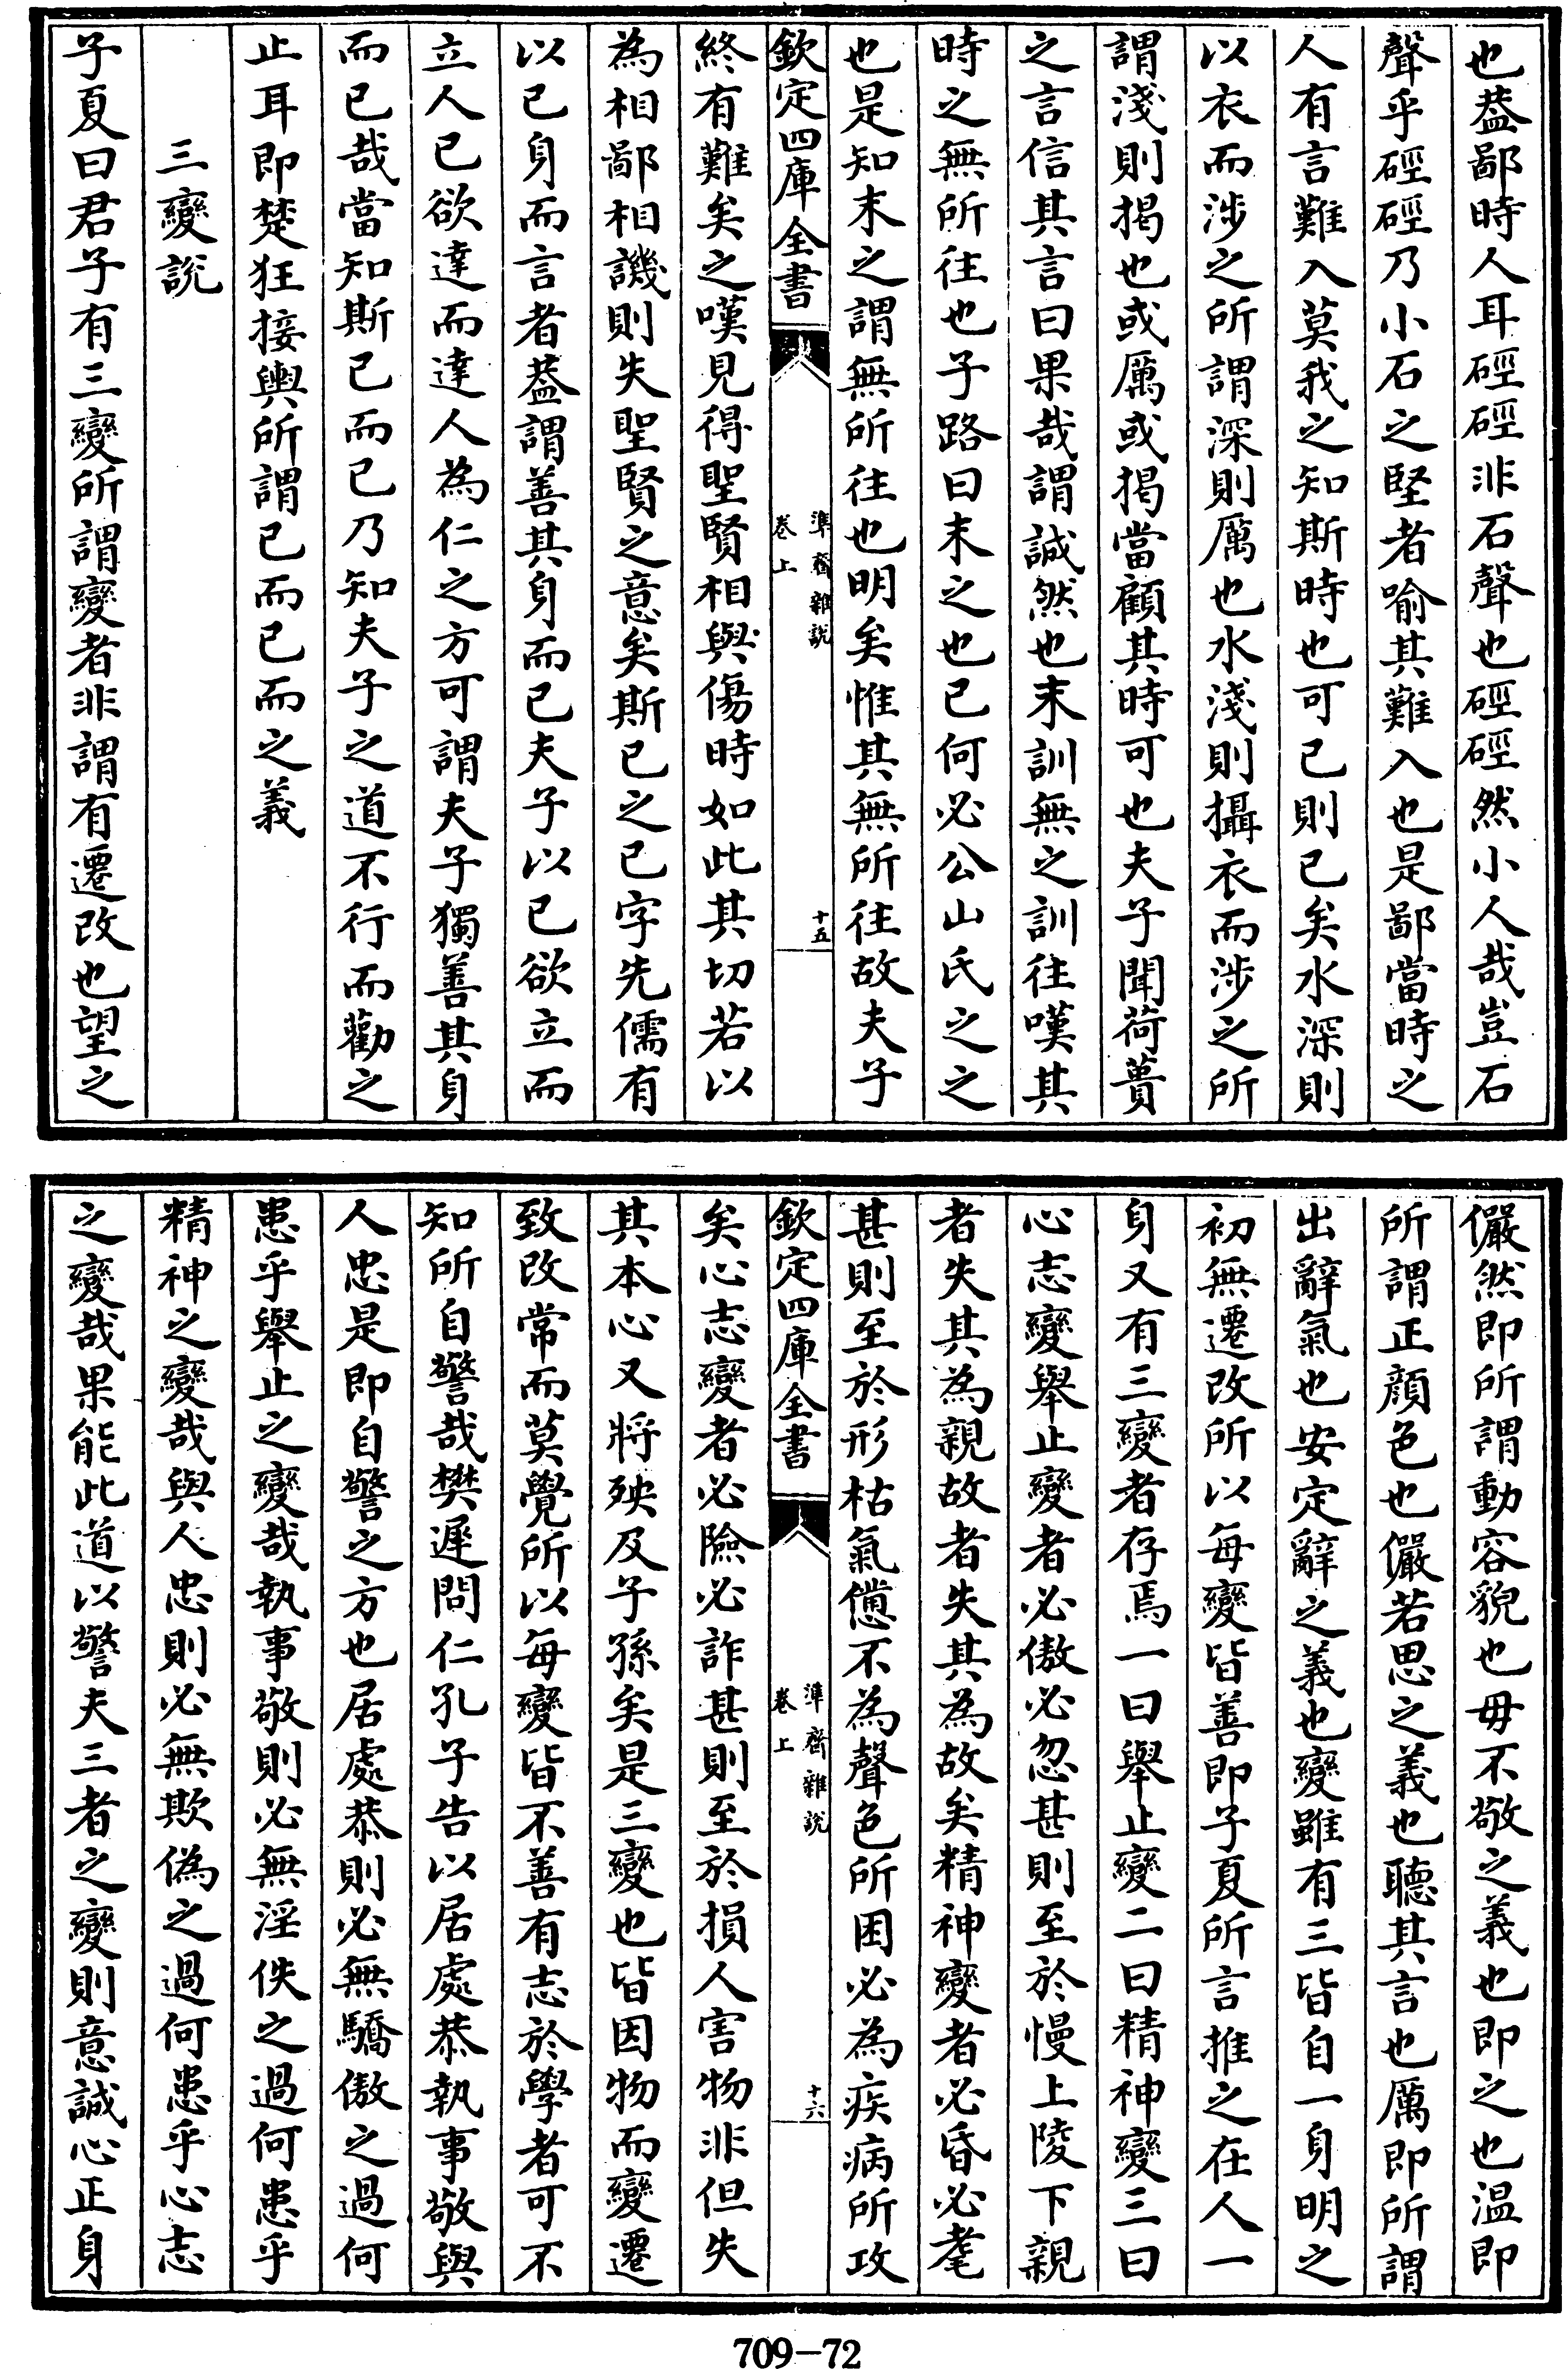 也葢鄙時人耳硜硜非石聲也硜硜然小人哉豈石
聲乎硜硜乃小石之堅者喻其難入也是鄙當時之
人有言難入莫我之知斯時也可已則已矣水深則
以衣而涉之所謂深則厲也水淺則攝衣而涉之所
謂淺則揭也或厲或揭當顧其時可也夫子聞荷蕢
之言信其言曰果哉謂誠然也末訓無之訓往嘆其
時之無所往也子路曰末之也已何必公山氏之之
也是知末之謂無所往也明矣惟其無所往故夫子
欽定四庫全書 準齋雜說 卷上 十五
終有難矣之嘆見得聖賢相與傷時如此其切若以
為相鄙相譏則失聖賢之意矣斯已之已字先儒有
以已身而言者葢謂善其身而已夫子以已欲立而
立人已欲達而達人為仁之方可謂夫子獨善其身
而已哉當知斯已而已乃知夫子之道不行而勸之
止耳即楚狂接輿所謂已而已而之義
三變說
子夏曰君子有三變所謂變者非謂有遷改也望之
儼然即所謂動容貌也毋不敬之義也即之也溫即
所謂正顔色也儼若思之義也聽其言也厲即所謂
出辭氣也安定辭之義也變雖有三皆自一身明之
初無遷改所以每變皆善即子夏所言推之在人一
身又有三變者存焉一曰舉止變二曰精神變三曰
心志變舉止變者必傲必忽甚則至於慢上陵下親
者失其為親故者失其為故矣精神變者必昏必耄
甚則至於形枯氣憊不為聲色所困必為疾病所攻
欽定四庫全書 準齋雜說 卷上 十六
矣心志變者必險必詐甚則至於損人害物非但失
其本心又將殃及子孫矣是三變也皆因物而變遷
致改常而莫覺所以每變皆不善有志於學者可不
知所自警哉樊遲問仁孔子告以居處恭執事敬與
人忠是即自警之方也居處恭則必無驕傲之過何
患乎舉止之變哉執事敬則必無淫佚之過何患乎
精神之變哉與人忠則必無欺偽之過何患乎心志
之變哉果能此道以警夫三者之變則意誠心正身
709-72